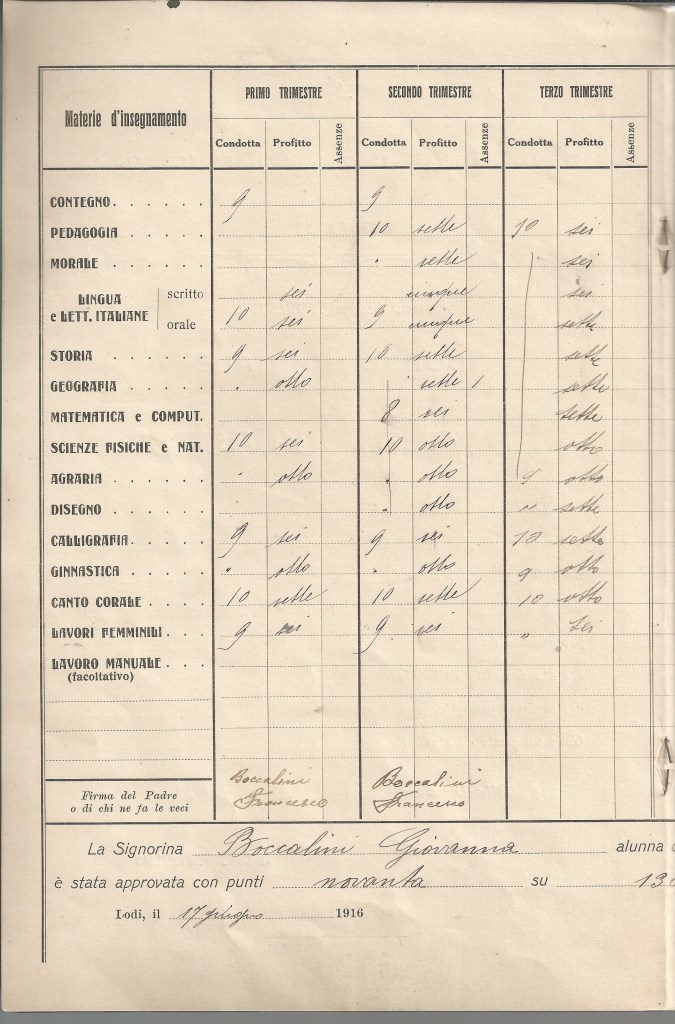 Materie d'insegnamento PRIMO TRIMESTRE SECONDO TRIMESTRE TERZO TRIMESTRE
Condotta Profitto Assenze Condotta Profitto Assenze Condotta Profitto Assenze
CONTEGNO. . . . . . 9 9
PEDAGOGIA . . . . . 10 sette 10 sei
MORALE . . . . . . . sette sei
LINGUA e LETT. ITALIANE scritto sei cinque sei
orale 10 sei 9 cinque sette
STORIA . . . . . . 9 sei 10 sette sette
GEOGRAFIA . . . . . . otto sette sette
MATEMATICA e COMPUT. 8 sei sette
SCIENZE FISICHE e NAT. 10 sei 10 otto otto
AGRARIA . . . . . . . otto . otto 9 otto
DISEGNO . . . . . . . otto " sette
CALLIGRAFIA. . . . . 9 sei 9 sei 10 sette
GINNASTICA . . . . . " otto . otto 9 otto
CANTO CORALE . . . . 10 sette 10 sette 10 otto
LAVORI FEMMINILI . . . 9 sei 9 sei " sei
LAVORO MANUALE . . .
(facoltativo)
Firma del Padre
o di chi ne fa le veci
Boccalini Francesco
Boccalini Francesco
La Signorina Boccalini Giovanna alunna
è stata approvata con punti novanta su 13
Lodi, il 17 giugno 1916